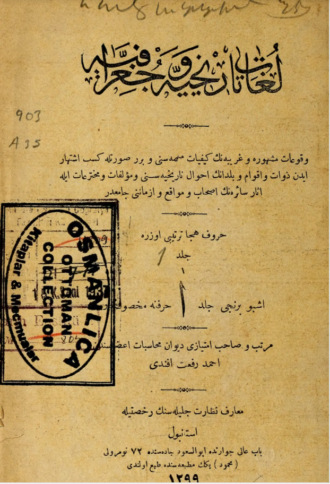 لغات تاریخیه و جغرافیه
903
A35
وقوعات مشهوره و غریبه‌نك كیفیات صحیحه‌سنی و برر صورتله كسب اشتهار
ایدن ذوات و اقوام و بلدانك احوال تاریخیه‌سنی و مؤلفات و مخترعات ایله
آثار سائره‌نك اصحاب و مواقع و ازماننی جامعدر
حروف هجا ترتیبی اوزره
جلد
١
اشبو برنجی جلد ا حرفنه مخصوصدر
مرتب و صاحب امتیازی دیوان محاسبات اعضاسندن
احمد رفعت افندی
معارف نظارت جلیله‌سنك رخصتیله
استانبول
باب عالی جوارنده ابوالسعود جاده‌سنده ٧٢ نومرولی
(محمود) بك‌ك مطبعه‌سنده طبع اولندی
١٢٩٩
OSMANLICA
OTTOMAN
COLLECTION
Kitaplar & Mecmualar